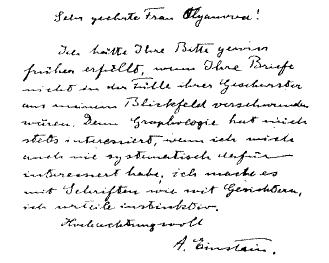 Sehr geehrte Frau Olyanova!
Ich hätte Ihre Bitte gewiss
früher erfüllt, wenn Ihre Briefe
nicht in der Fülle ihrer Geschwister
aus meinem Blickfeld verschwunden
wären. Denn Graphologie hat mich
stets interessiert, wenn ich mich
auch nie systematisch dafür
interessert habe, ich mache es
mit Schriften wie mit Gesichtern,
ich urteile instinktiv.
Hochachtungsvoll
A. Einstein.